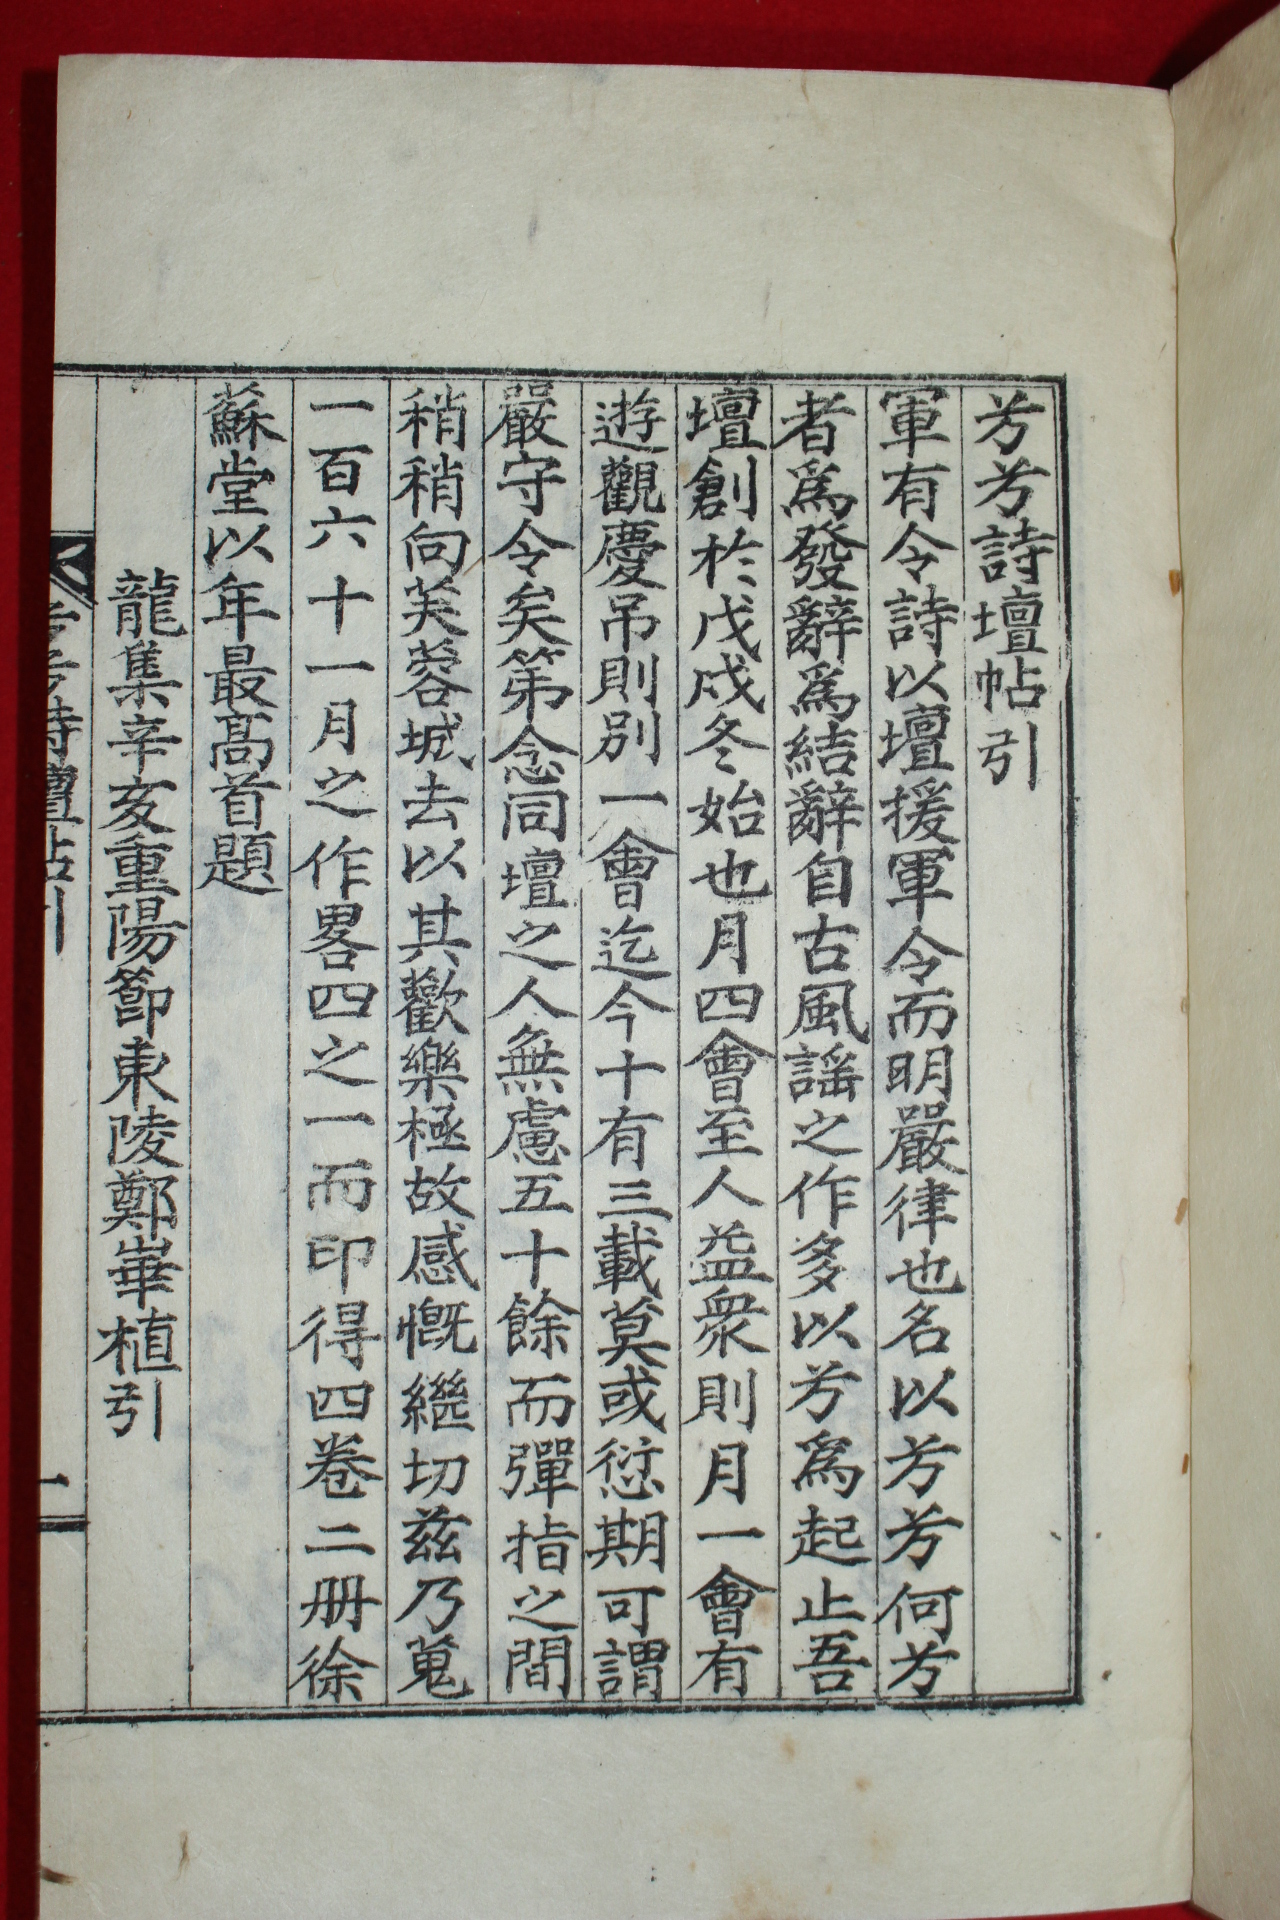 芳芳詩壇帖引
軍有令詩以壇援軍令而明嚴律也名以芳芳何芳
者爲發辭爲結辭自古風謠之作多以芳爲起止吾
壇創於戊戌冬始也月四會至人益衆則月一會有
遊觀慶吊則別一會迄今十有三載莫或愆期可謂
嚴守令矣第念同壇之人無慮五十餘而彈指之間
稍稍向芙蓉城去以其歡樂極故感慨繼切玆乃蒐
一百六十一月之作畧四之一而印得四卷二册徐
蘇堂以年最高首題
龍集辛亥重陽節東陵鄭崋植引
芳芳詩壇帖引
一